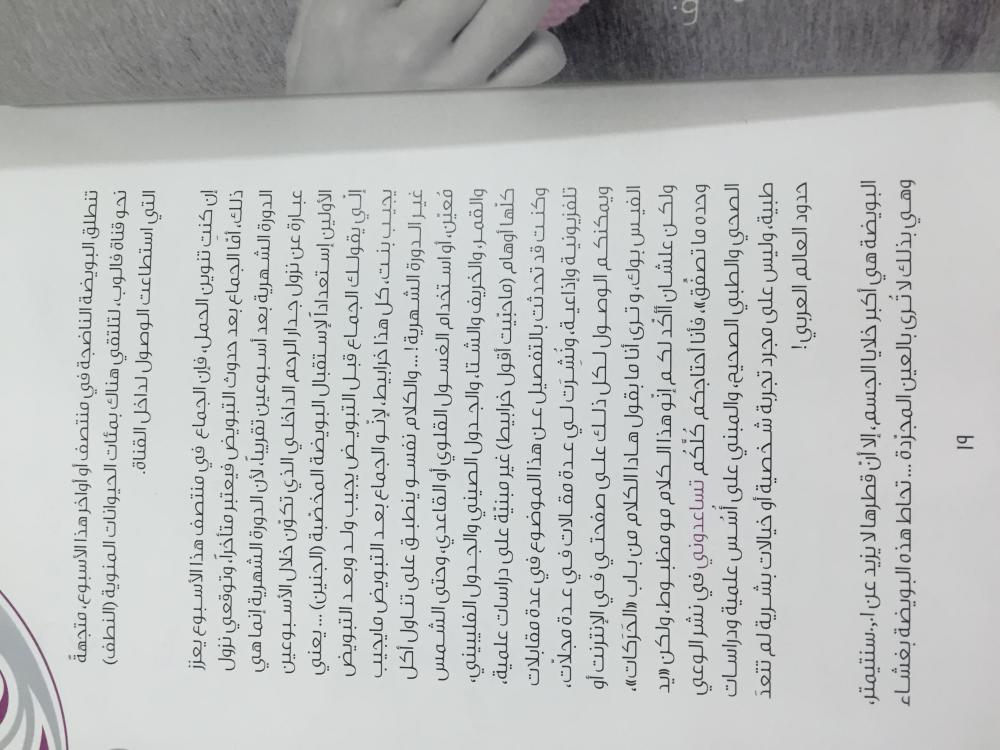 تنطلق البويضة الناضجة في منتصف أو أواخر هذا الأسبوع، متجهةً
نحو قناة فالوب، لتلتقي هناك بمئات الحيوانات المنوية (النطف)
التي استطاعت الوصول لداخل القناة.
إن كنتِ تنوين الحمل، فإن الجماع في منتصف هذا الأسبوع يعزز
ذلك، أمّا الجماع بعد حدوث التبويض فيعتبر متأخراً، وتوقعي نزول
الدورة الشهرية بعد أسبوعين تقريباً، لأن الدورة الشهرية إنما هي
عبارة عن نزول جدار الرحم الداخلي الذي تكوّن خلال الأسبوعين
الأولين إستعداداً لإستقبال البويضة المخصّبة (الجنين) ... يعني
إلّي يقولك الجماع قبل التبويض يجيب ولد وبعد التبويض
يجيب بنت، كل هذا خرابيط، لإنّو الجماع بعد التبويض مايجيب
غير الدورة الشهرية! ... والكلام نفسو ينطبق على تناول أكل
مُعيّن، أو استخدام الغسول القلوي أو القاعدي، وحتى الشمس
والقمر، والخريف والشتا، والجدول الصيني والجدول الفلبيني،
كلّها أوهام (ماحبّيت أقول خرابيط) غير مبنيّة على دراسات علمية،
وكنت قد تحدثت بالتفصيل عن هذا الموضوع في عدة مقابلات
تلفزيونية وإذاعية، ونُشِرَت لي عدة مقالات في عدة مجلّات،
ويمكنكم الوصول لكل ذلك على صفحتي في الإنترنت أو
الفيس بوك، و ترى أنا ما بقول هادا الكلام من باب «الحَرَكات»،
ولكن علشان أأكّد لكم إنّو هذا الكلام مو مظبوط، ولكن «يد
وحده ما تصفّق»، فأنا أحتاجكم كلّكُم تساعدوني في نشر الوعي
الصحي والطبي الصحيح، والمبني على أُسُس علمية ودراسات
طبية، وليس على مجرد تجربة شخصية أو خيالات بشرية لم تتعدَ
حدود العالم العربي!
البويضة هي أكبر خلايا الجسم، إلا أنّ قطرها لا يزيد عن ٠,١ سنتيمتر،
وهي بذلك لا تُرى بالعين المجرّدة ... تحاط هذه البويضة بغشاء
١٩